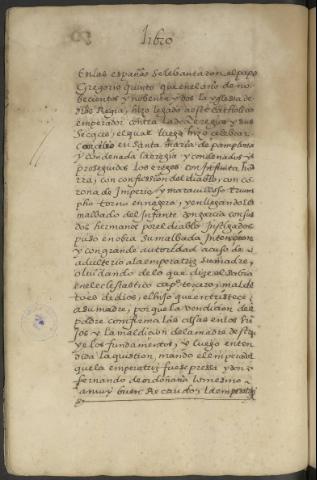 libro
En las españas se lebantaron el papa
Gregorio quinto que en el año de no-
becientos y nobenta y dos la yglesia de
dios Regia, hizo legado a este catholico
emperador contra la
secaçes, el qual luego hizo celebrar
Concilio en santa maria de pamplona
y condenada la eregia y condenados y
proseguidos los ereges con infinita ho
rra, con confussion del diablo con co
rona de Imperio y marauilloso trium
pho torno en nagera, y en llegando lo
malbado del infante don garcia con sus
dos hermanos por el diablo Instigados
puso en obra su malbada Intencion
y con grande autoridad acuso de
adulterio a la emperatriz su madre,
oluidando de lo que dize el sabio
en el eclesiastico cap.º tercero; maldi
to es de dios, el hijo que entristece
a su madre, porque la bendicion del
padre confirma las casas en los hi
jos y la maldicion de la madre destru
ye los fundamentos, e luego enten
dida la question, mando el emperador
que la emperatriz fuese pressa y don
fernando de ordoñano lo mesmo
a muy buen Recaudo, la emperatriz